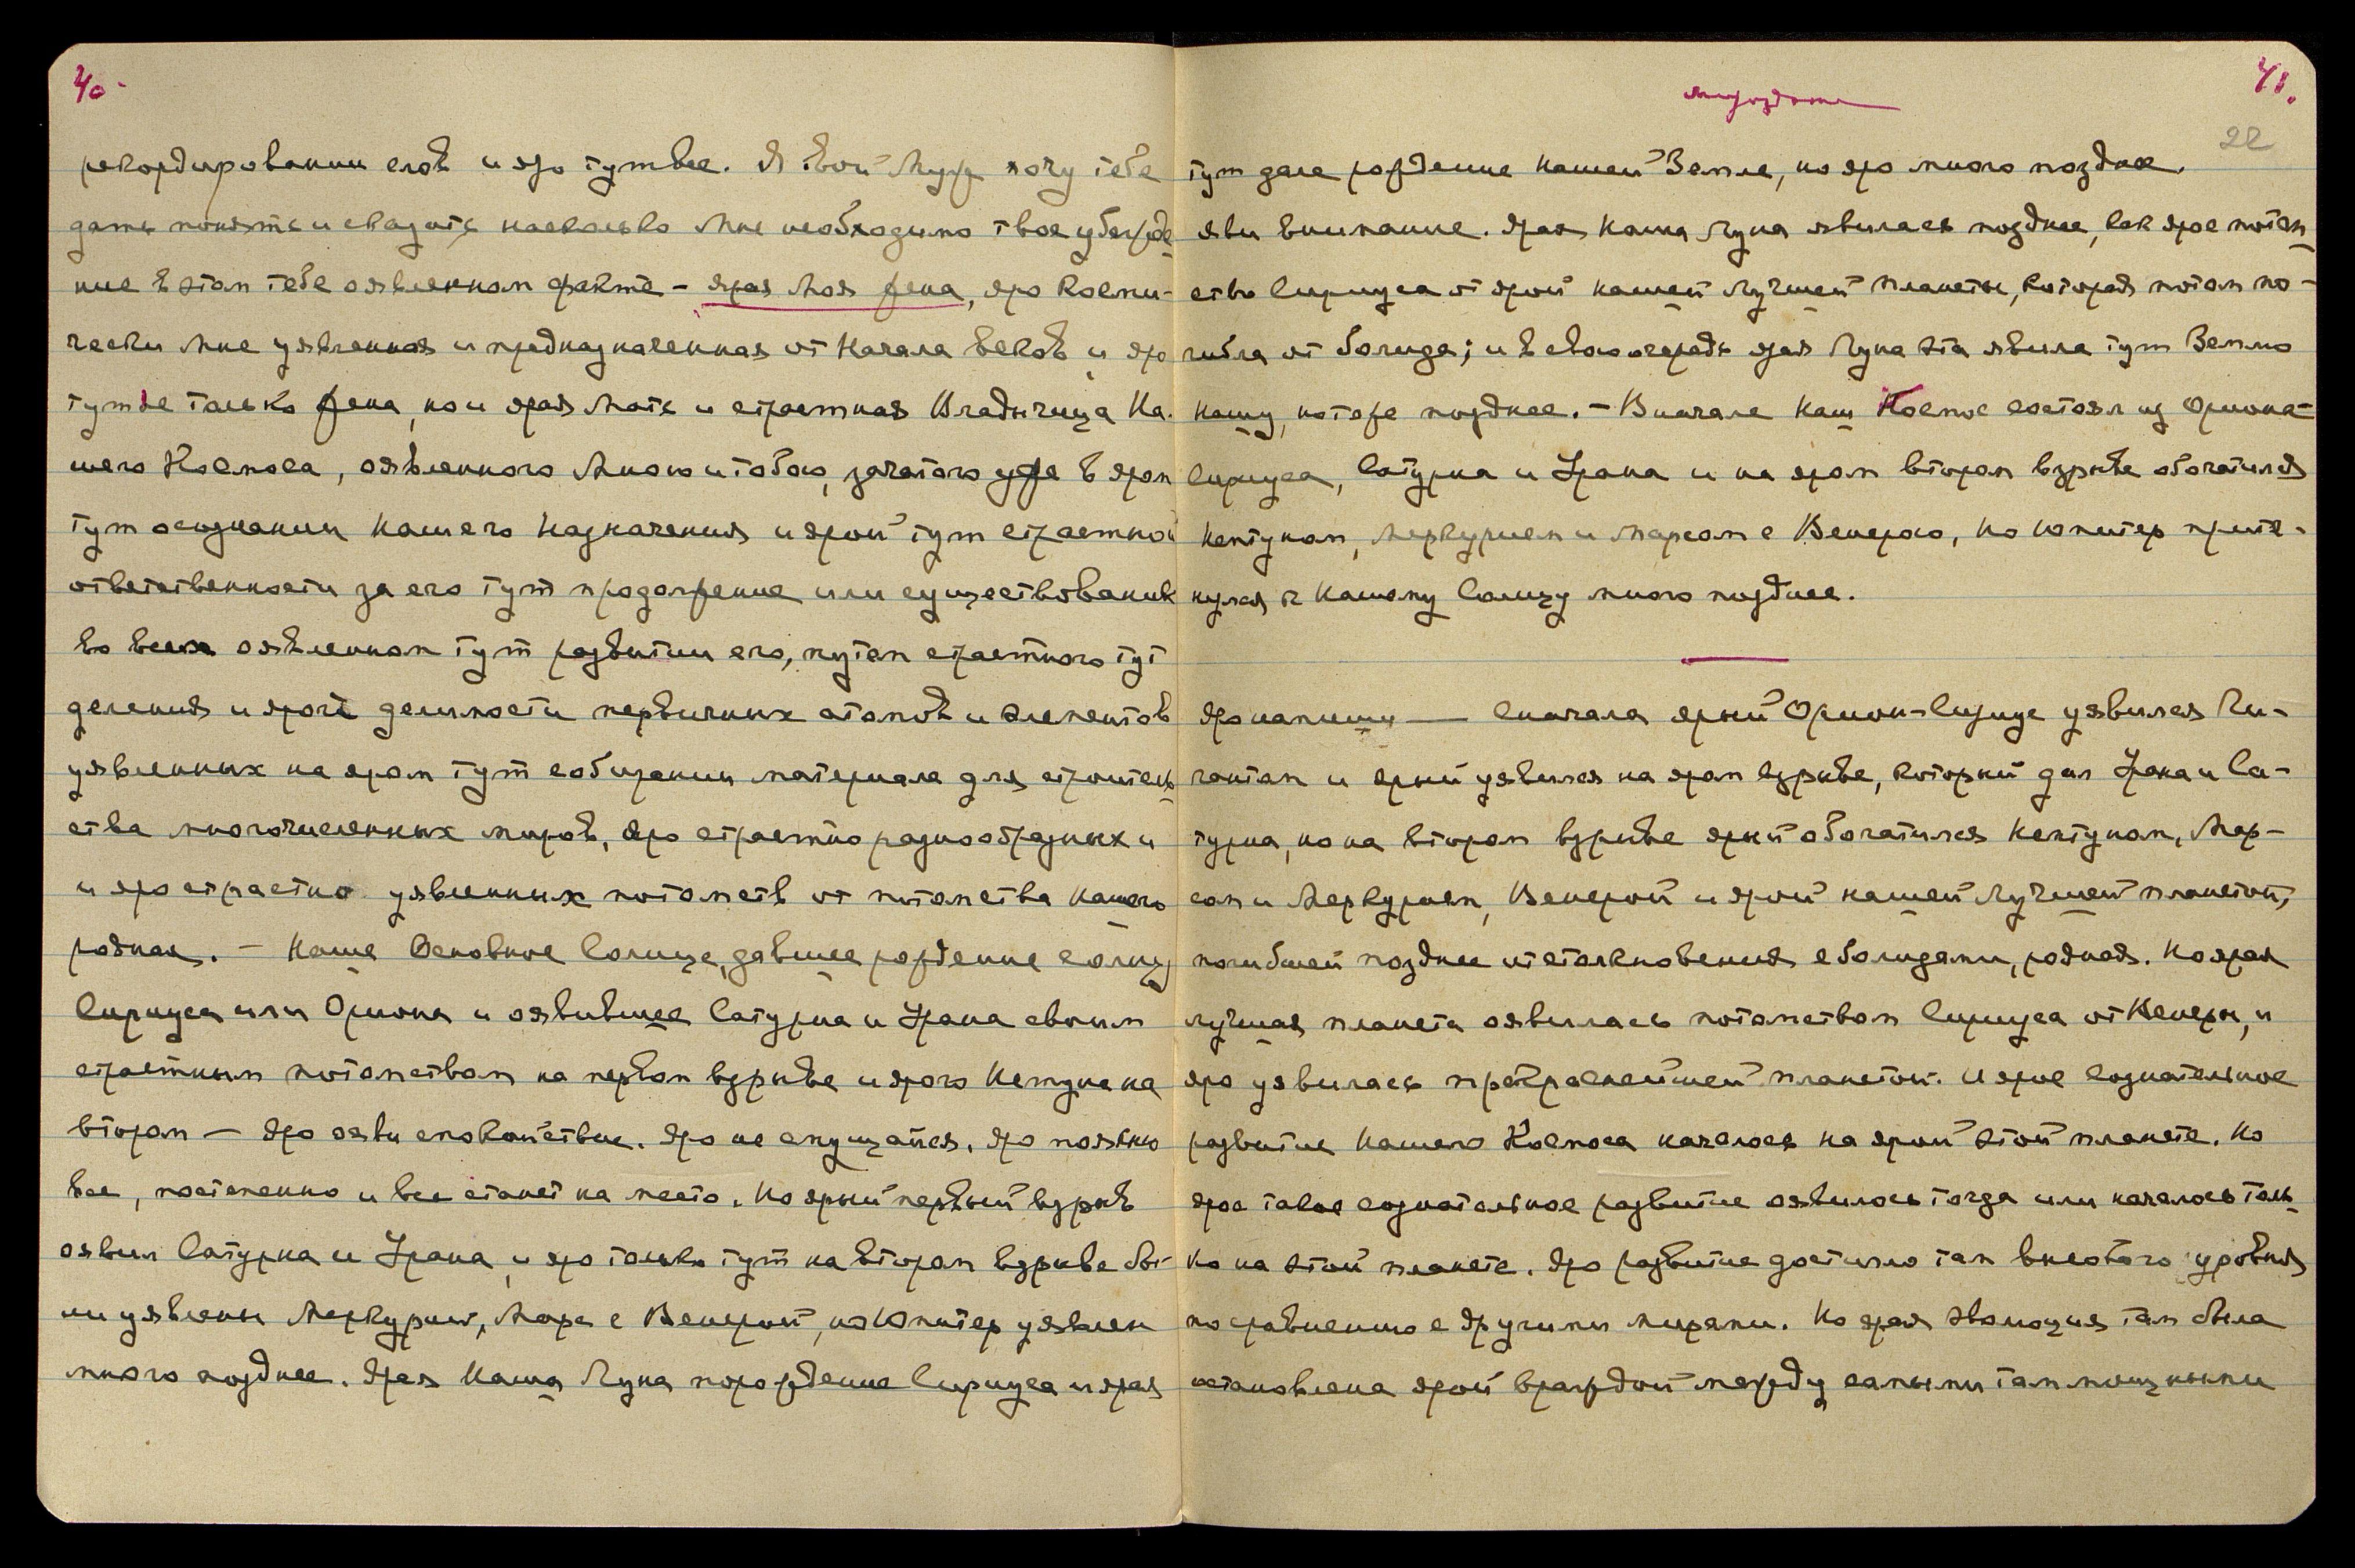 40.
рекордировании слов и яро тут все. Я твой Муж хочу тебе
дать понять и сказать насколько Мне необходимо твое убежде
ние в этом тебе оявленном факте – ярая Моя жена, яро косми-
чески Мне уявленная и предназначенная от Начала веков и яро
тут не только жена, но и ярая Мать и страстная Владычица На-
шего Космоса, оявленного Мною и тобою, зачатого уже в яром
тут осознании нашего Назначения и ярой тут страстной
ответственности за его тут продолжение или существование
во всем оявленном тут развитии его, путем страстного тут
деления и ярой делимости первичных атомов и элементов
уявленных на яром тут собирании материала для строитель
ства многочисленных миров, яро страстно разнообразных и
и яро страстно уявленных потомств от потомства нашего
родная. – Наше Основное Солнце, давшее рождение солнцу
Сириуса или Ориона и оявившее Сатурна и Урана своим
страстным потомством на первом взрыве и ярого Нептуна на
втором – яроояви спокойствие. Яро не смущайся. Яро поясню
все, постепенно и все станет на место. Но ярый первый взрыв
оявил Сатурна и Урана, и яро только тут на втором взрыве бы-
ли уявлены Меркурий, Марс с Венерой, но Юпитер уявлен
много позднее. Ярая Наша Луна порождение Сириуса и ярая
41.
мироздание
22
тут дала рождение нашей Земле, но яро много позднее.
Яви внимание. Ярая Наша Луна явилась позднее, как ярое потом
ство Сириуса от ярой нашей Лучшей планеты, которая потом по-
гибла от болида; и в свою очередь ярая Луна эта явила тут Землю
нашу, но тоже позднее. – Вначале наш Космос состоял из Ориона-
Сириуса, Сатурна и Урана и на яром втором взрыве обогатился
Нептуном, Меркурием и Марсом с Венерою, но Юпитер притя-
нулся к Нашему Солнцу много позднее.
Яро напишу — Сначала ярый Орион-Сириус уявился Ги-
гантом и ярый уявился на яром взрыве, который дал Урана и Са-
турна, но на втором взрыве ярый обогатился Нептуном, Мар-
сом и Меркурием, Венерой и ярой нашей Лучшей планетой,
погибшей позднее от столкновения с болидами, родная. Но ярая
лучшая планета оявилась потомством Сириуса от Венеры, и
яро уявилась прекраснейшей планетой. И ярое сознательное
развитие Нашего Космоса началось на ярой этой планете. Но
ярое такое сознательное развитие оявилось тогда или началось толь
ко на этой планете. Яро развитие достигло там высокого уровня
по сравнению с другими мирами. Но ярая эволюция там была
остановлена ярой враждой между самыми там мощными